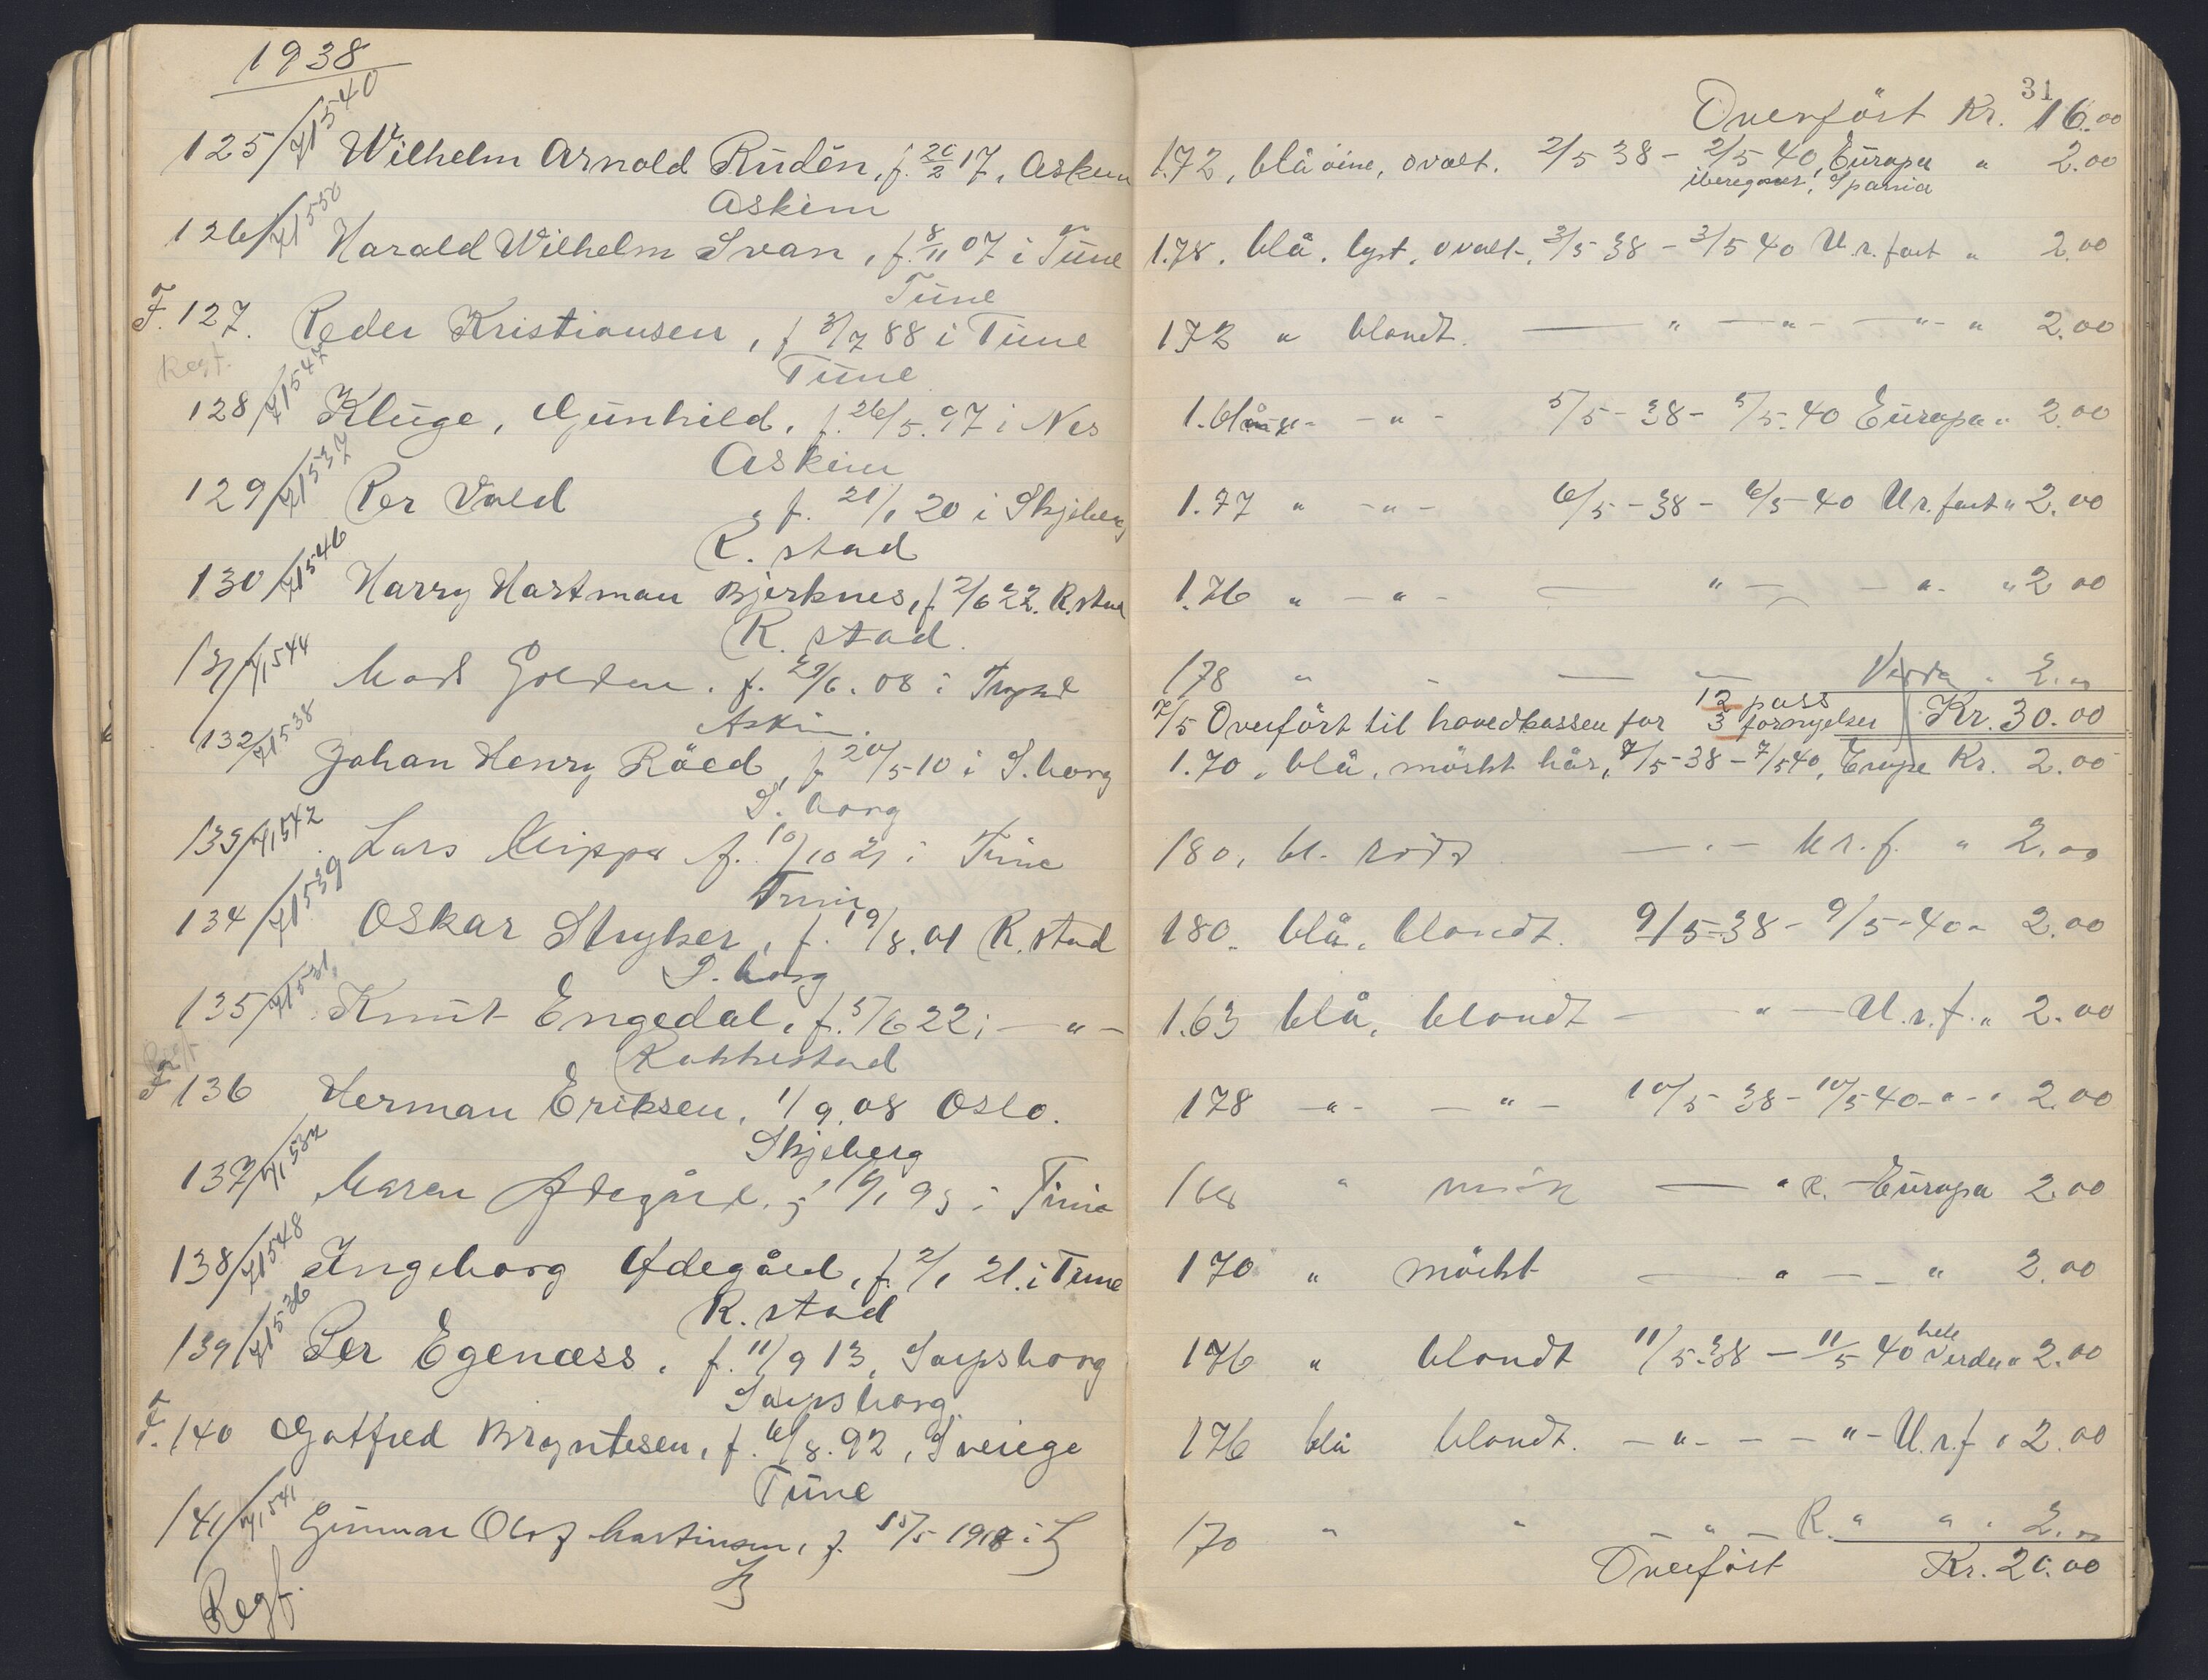 1938
31
Overført Kr. 16.00
125/71540 Wilhelm Arnold Rudén, f. 20/2 17, Askim 1.72, blå öine, ovalt. 2/5 38 - 2/5 40, Europa " 2.00
Spania
Askim
126/71550 Harald Wilhelm Svan, f. 8/11 07 i Tune 1.78. blå. lyst. ovalt. 3/5 38 - 3/5 40 U.r. fart " 2.00
Tune
F. 127. Peder Kristiansen, f 3/7 88 i Tune 172 " blondt. — " — " — " — " 2.00
Regf.
Tune
128/71547 Kluge, Gunhild, f. 26/5. 97 i Nes 1. blå - " - 5/5 - 38 - 5/5. 40 Europa " 2.00
Askim
129/71537 Per Vold, f. 21/1 20 i Skjeberg 1.77 " - " - 6/5 - 38 - 6/5 - 40 U.r. fart " 2.00
R. stad
130/71546 Harry Hartman Bjerknes, f 2/6 22. R.stad 1.76 " - " - — " — - " - " 2.00
R. stad.
131/71544 f. 29/6. 08 i Trysil 178 " - — — Verden " 2.00
7/5 Overført til hovedkassen for 12 pass 3 fornyelser Kr. 30.00
Askim.
132/71538 Johan Henry Röed, f 20/5 10 i S.borg 1.70, blå, mörkt hår, 7/5 - 38 - 7/5 40, Europa Kr. 2.00
S. borg
133/71542 Lars f. 10/10 21 i Tune 180, bl. rödt — " — U.r.f. " 2.00
Tune
134/71539 Oskar Stryker, f. 19/8. 01 R. stad 180. blå. blondt. 9/5 - 38 - 9/5 - 40 " 2.00
S. borg
135/71531 Knut Engedal, f. 5/6 22 i — " — 1.63 blå, blondt — " — U.r.f. " 2.00
Rakkestad
F 136 Herman Eriksen, 1/9. 08 Oslo. 178 - " - - " - 10/5 - 38 - 10/5 40 - " - " 2.00
Skjeberg
137/71532 Maren Ødegård, 95 i Tune 168 " mörk — " R. - Europa 2.00
138/71548 Ingeborg Ødegård, f. 2/1 21. i Tune 170 " mörkt — " — " 2.00
R. stad
139/71536 Per Egenæss, f. 11/9 13, Sarpsborg 176 " blondt 11/5. 38 - 11/5 40 hele Verden " 2.00
Sarpsborg
F. 140 Gotfred Bryntesen, f. 6/8. 92, Sverige 176 blå blondt. - " - - - " - U.r.f " 2.00
Tune
141/71541 Gunnar Olof Martinsen, f. 15/5 1918 i 170 " " - " - R. " " " 2.00
Overført Kr. 20.00
Regf.